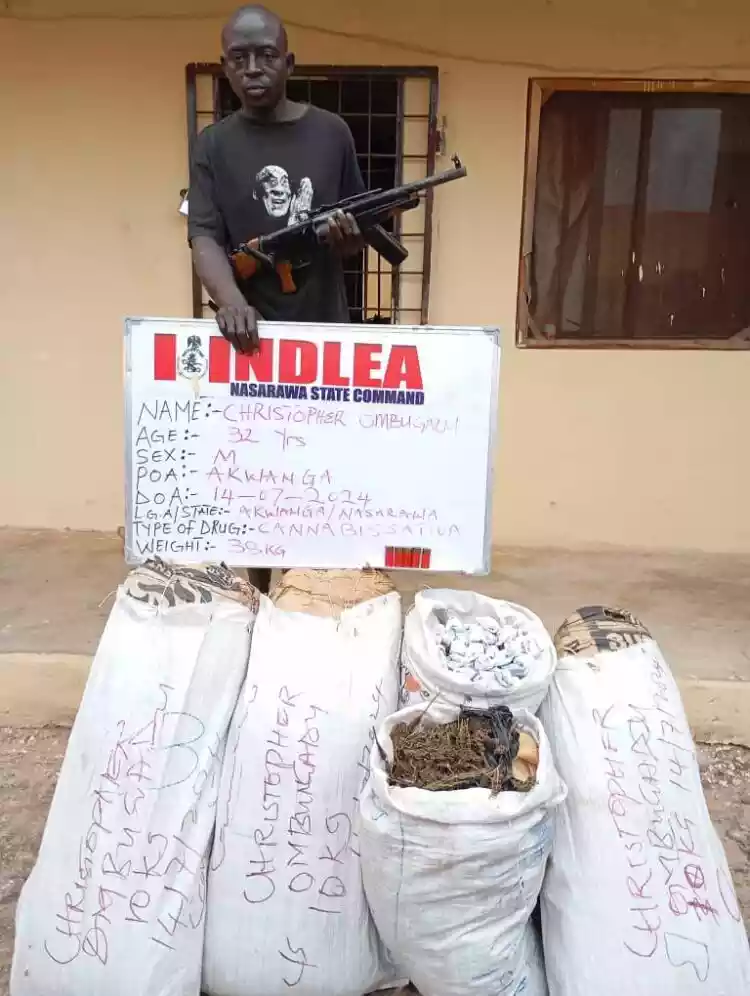 NDLEA
NASARAWA STATE COMMAND
NAME:- CHRISTOPHER OMBUGADU
AGE:- 32 Yrs
SEX:- M
POA:- AKWANGA
DOA:- 14-07-2024
L.G.A/STATE:- AKWANGA/NASARAWA
TYPE OF DRUG:- CANNABIS SATIVA
WEIGHT:- 38KG
CHRISTOPHER
OMBUGADU
10KS
14/7/2024
CHRISTOPHER
OMBUGADY
10KS
CHRISTOPHER
OMBUGADY
10KS 14/7/2024